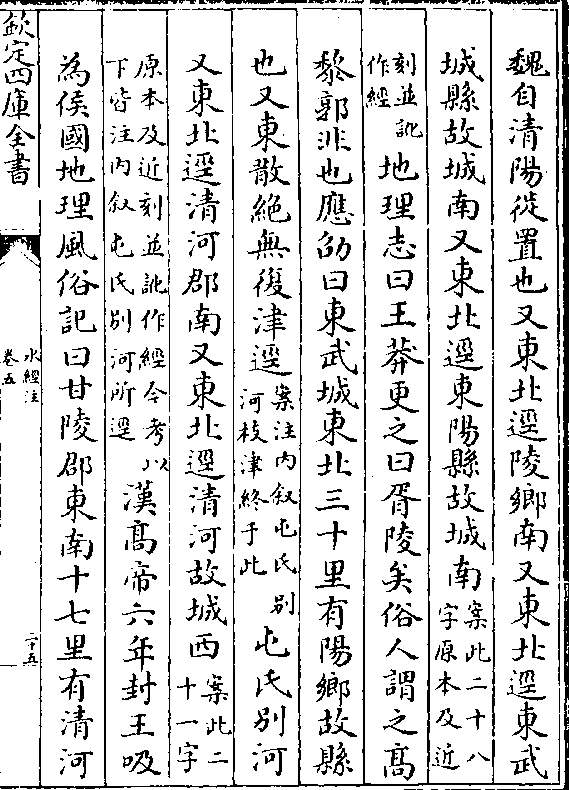 魏自清陽徙置也又東北逕陵鄉南又東北逕東武
城縣故城南又東北逕東陽縣故城南案此二十八字原本及近
刻並訛作經地理志曰王莽更之曰胥陵矣俗人謂之高
黎郭非也應劭曰東武城東北三十里有陽鄉故縣
也又東散絶無復津逕案注内叙屯氏别河枝津終于此屯氏别河
又東北逕清河郡南又東北逕清河故城西案此二十一字
原本及近刻並訛作經今考以下皆注内叙屯氏别河所逕漢高帝六年封王吸
為侯國地理風俗記曰甘陵郡東南十七里有清河
欽定四庫全書
水經注
卷五
二十五